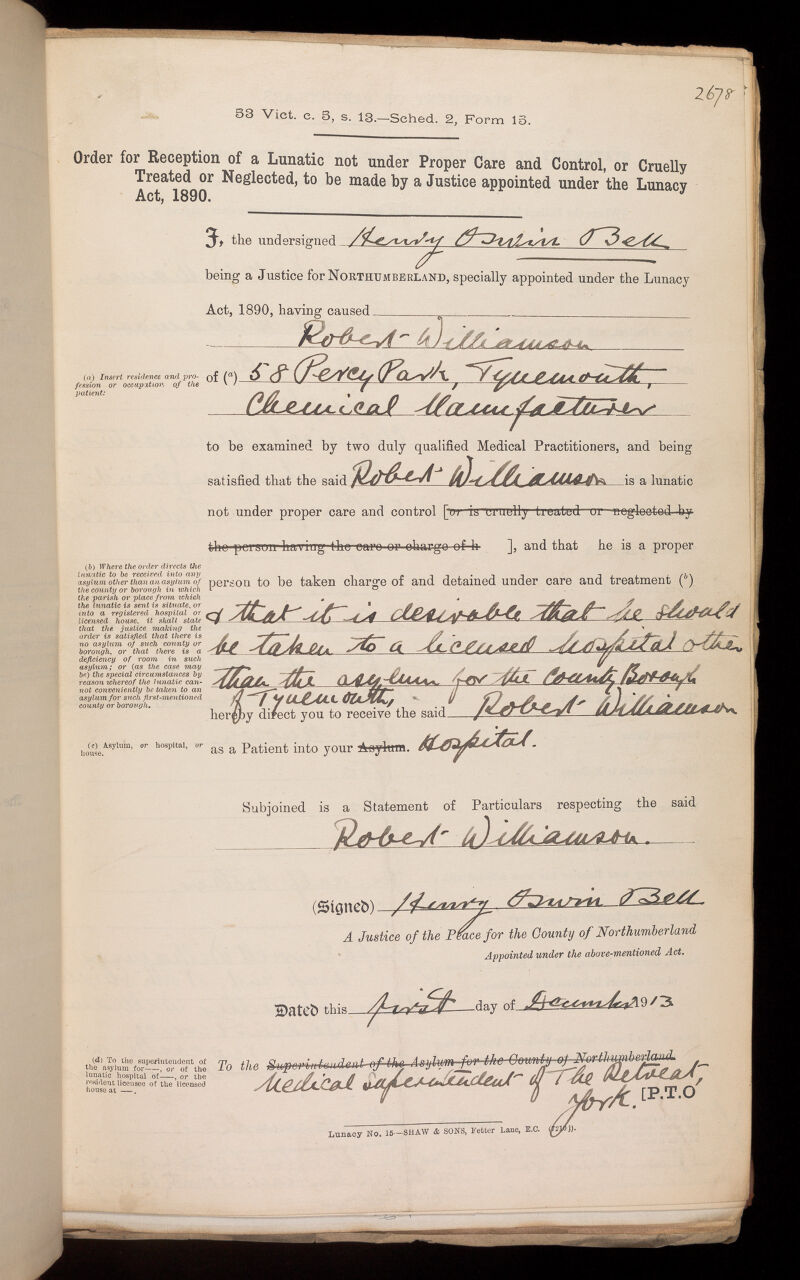 2678
53 Vict. c. 5, s. 13.—Sched. 2, Form 15.
Order for Reception of a Lunatic not under Proper Care and Control, or Cruelly
Treated or Neglected, to be made by a Justice appointed under the Lunacy
Act, 1890.
I, the undersigned Henry Oswin Bell
being a Justice for NORTHUMBERLAND, specially appointed under the Lunacy
Act, 1890, having caused
Robert Williamson
(a) Insert residence and pro-
fession or occupation of the
patient:
of (a) 58 Percy Park, Tynemouth,
Chemical Manufacturer
to be examined by two duly qualified Medical Practitioners, and being
satisfied that the said Robert Williamson is a lunatic
not under proper care and control [or is cruelly treated or neglected by
the person having the care or charge of h ], and that he is a proper
(b) Where the order directs the
lunatic to be received into any
asylum other than an asylum of
the county or borough in which
the parish or place from which
the lunatic is sent is situate, or
into a registered hospital or
licensed house, it shall state
that the justice making the
order is satisfied that there is
no asylum of such county or
borough, or that there is a
deficiency of room in such
asylum; or (as the case may
be) the special circumstances by
reason whereof the lunatic can-
not conveniently be taken to an
asylum for such first-mentioned
county or borough.
person to be taken charge of and detained under care and treatment (b)
& that it is desirable that he should
be taken to a licensed hospital other
than the asylum for the County Borough
of Tynemouth,
hereby direct you to receive the said Robert Williamson
(c) Asylum, or hospital, or
house.
as a Patient into your Asylum. Hospital.
Subjoined is a Statement of Particulars respecting the said
Robert Williamson.
(Signed) Henry Oswin Bell
A Justice of the Peace for the County of Northumberland
Appointed under the above-mentioned Act.
Dated this first day of December 1913
(d) To the superintendent of
the asylum for——, or of the
lunatic hospital of——, or the
resident licensee of the licensed
house at —.
To the Superintendent of the Asylum for the County of Northumberland.
Medical Superintendent of The Retreat,
York.
[P.T.O
Lunacy No. 15—SHAW & SONS, Fetter Lane, E.C.